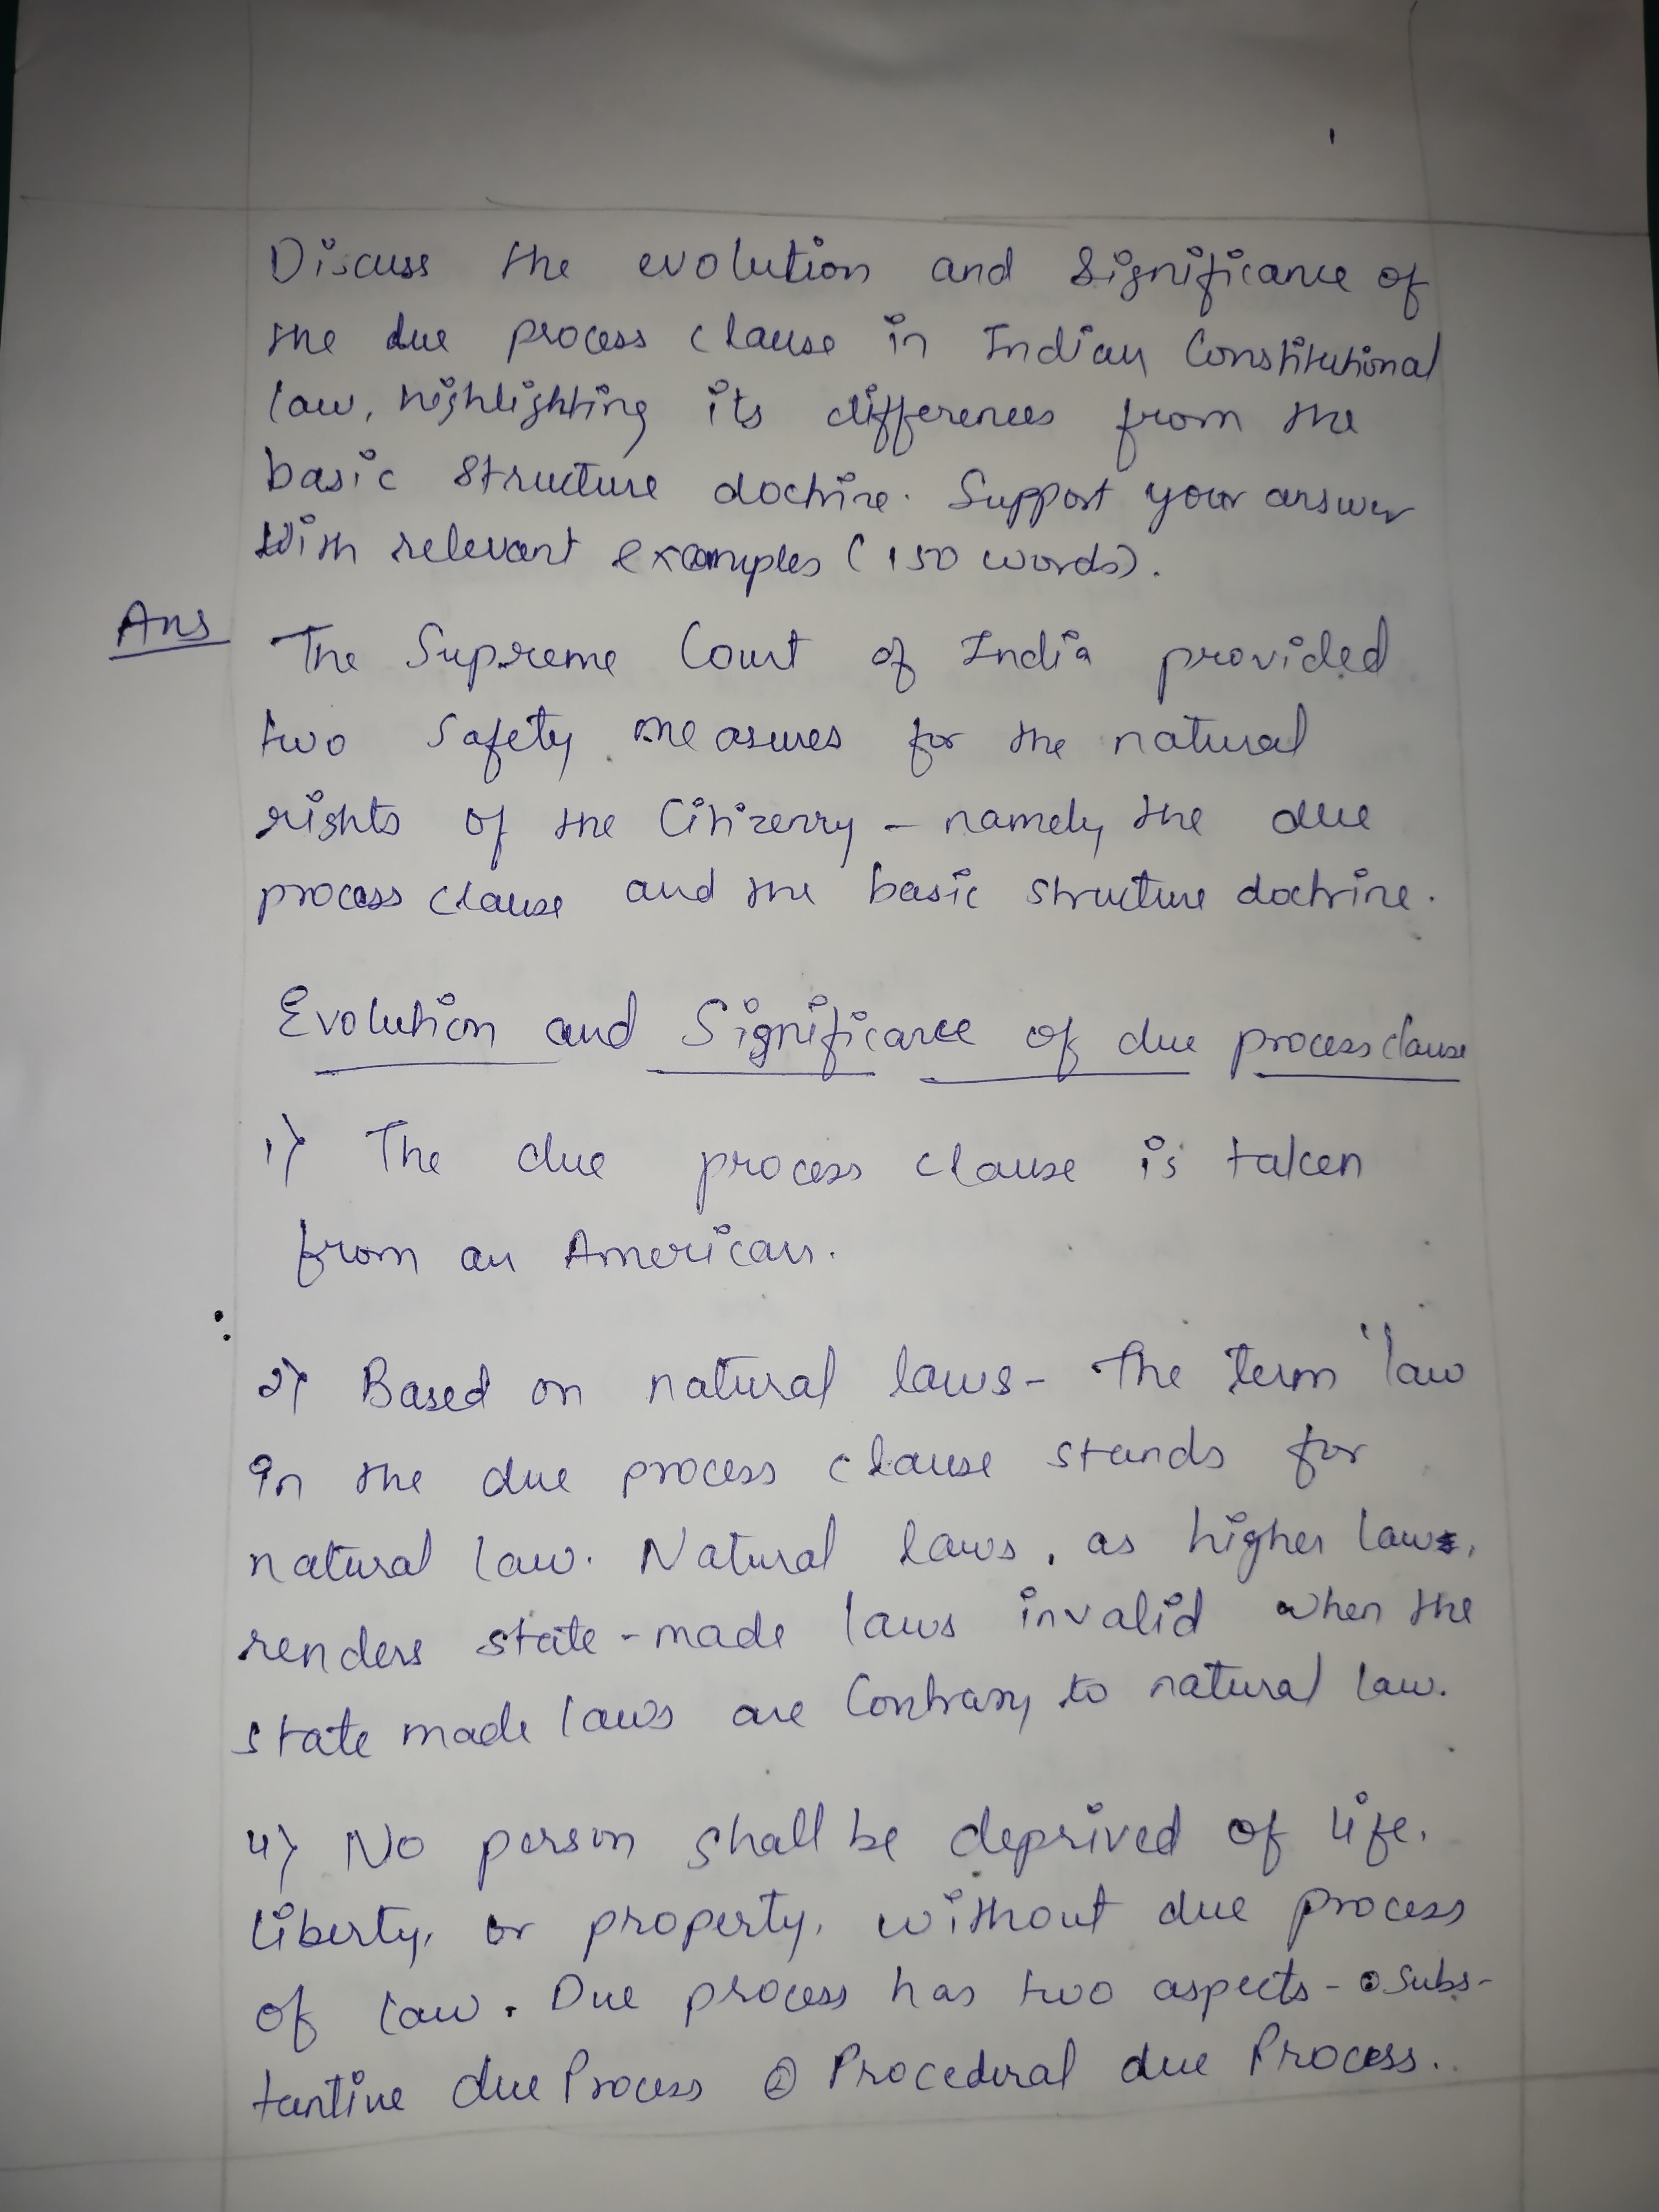 Discuss the evolution and Significance of
the due process clause in Indian Constitutional
law, highlighting its differences from the
basic structure doctrine. Support your answer
with relevant examples (150 words).
Ans
The Supreme Court of India provided
two safety measures for the natural
rights of the Citizenry - namely the due
process clause and the basic structure doctrine.
Evolution and Significance of due process clause
1) The due process clause is taken
from an American.
2) Based on natural laws - The term "law
in the due process clause stands for
natural law. Natural laws, as higher law,
renders state-made laws invalid when the
state made laws are Contrary to natural law.
4) No person shall be deprived of life,
liberty, or property, without due process
of law. Due process has two aspects - ① Subs-
tantive due Process ② Procedural due Process.